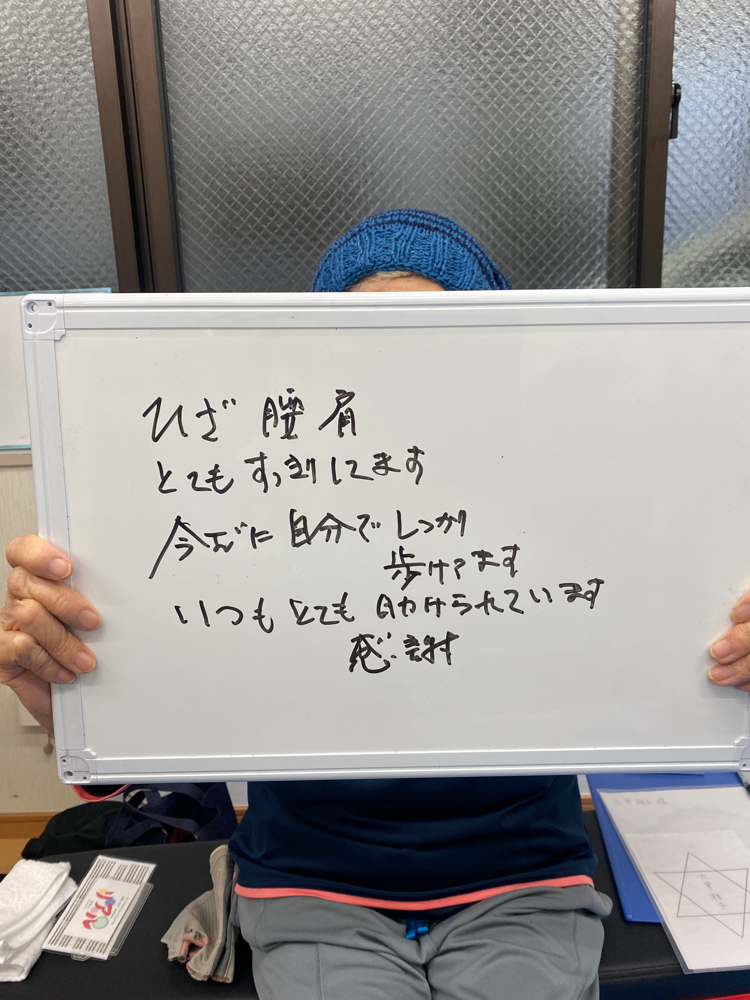 ひざ 腰 肩
とてもすっきりしてます
今だに自分でしっかり
歩けてます
いつもとても助けられています
感謝
リズム